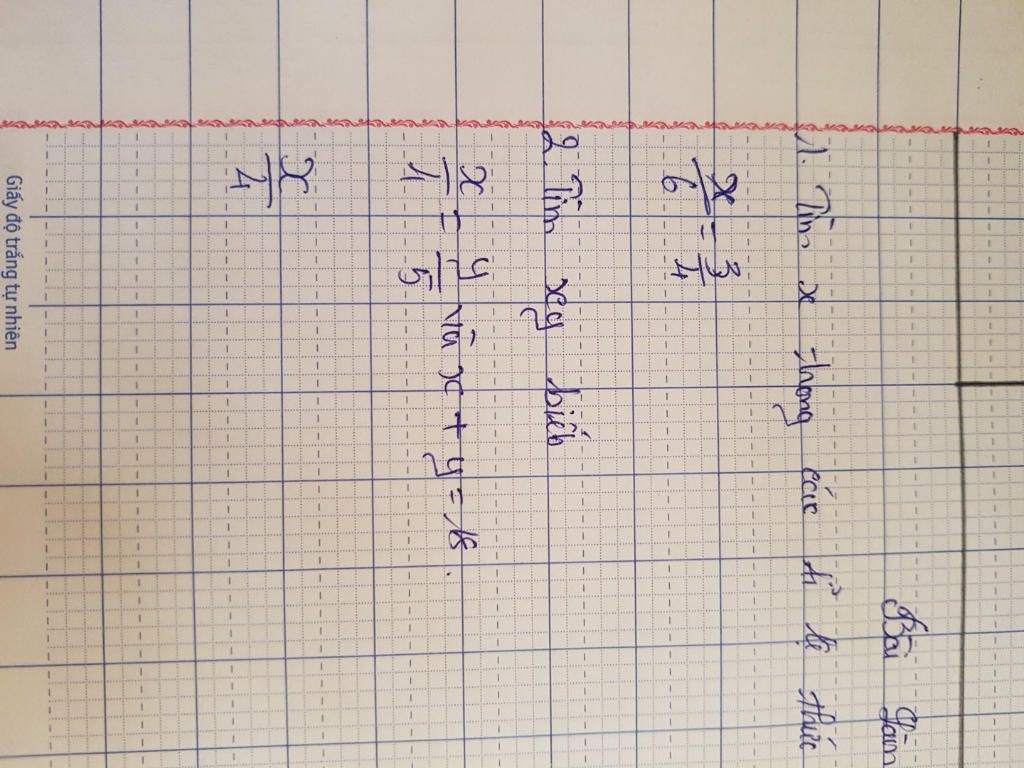 Bài làm
1. Tìm x trong các tỉ lệ thức
x/6 = 3/4
2. Tìm xy biết
x/4 = y/5 và x + y = 18.
x/4
Giấy độ trắng tự nhiên